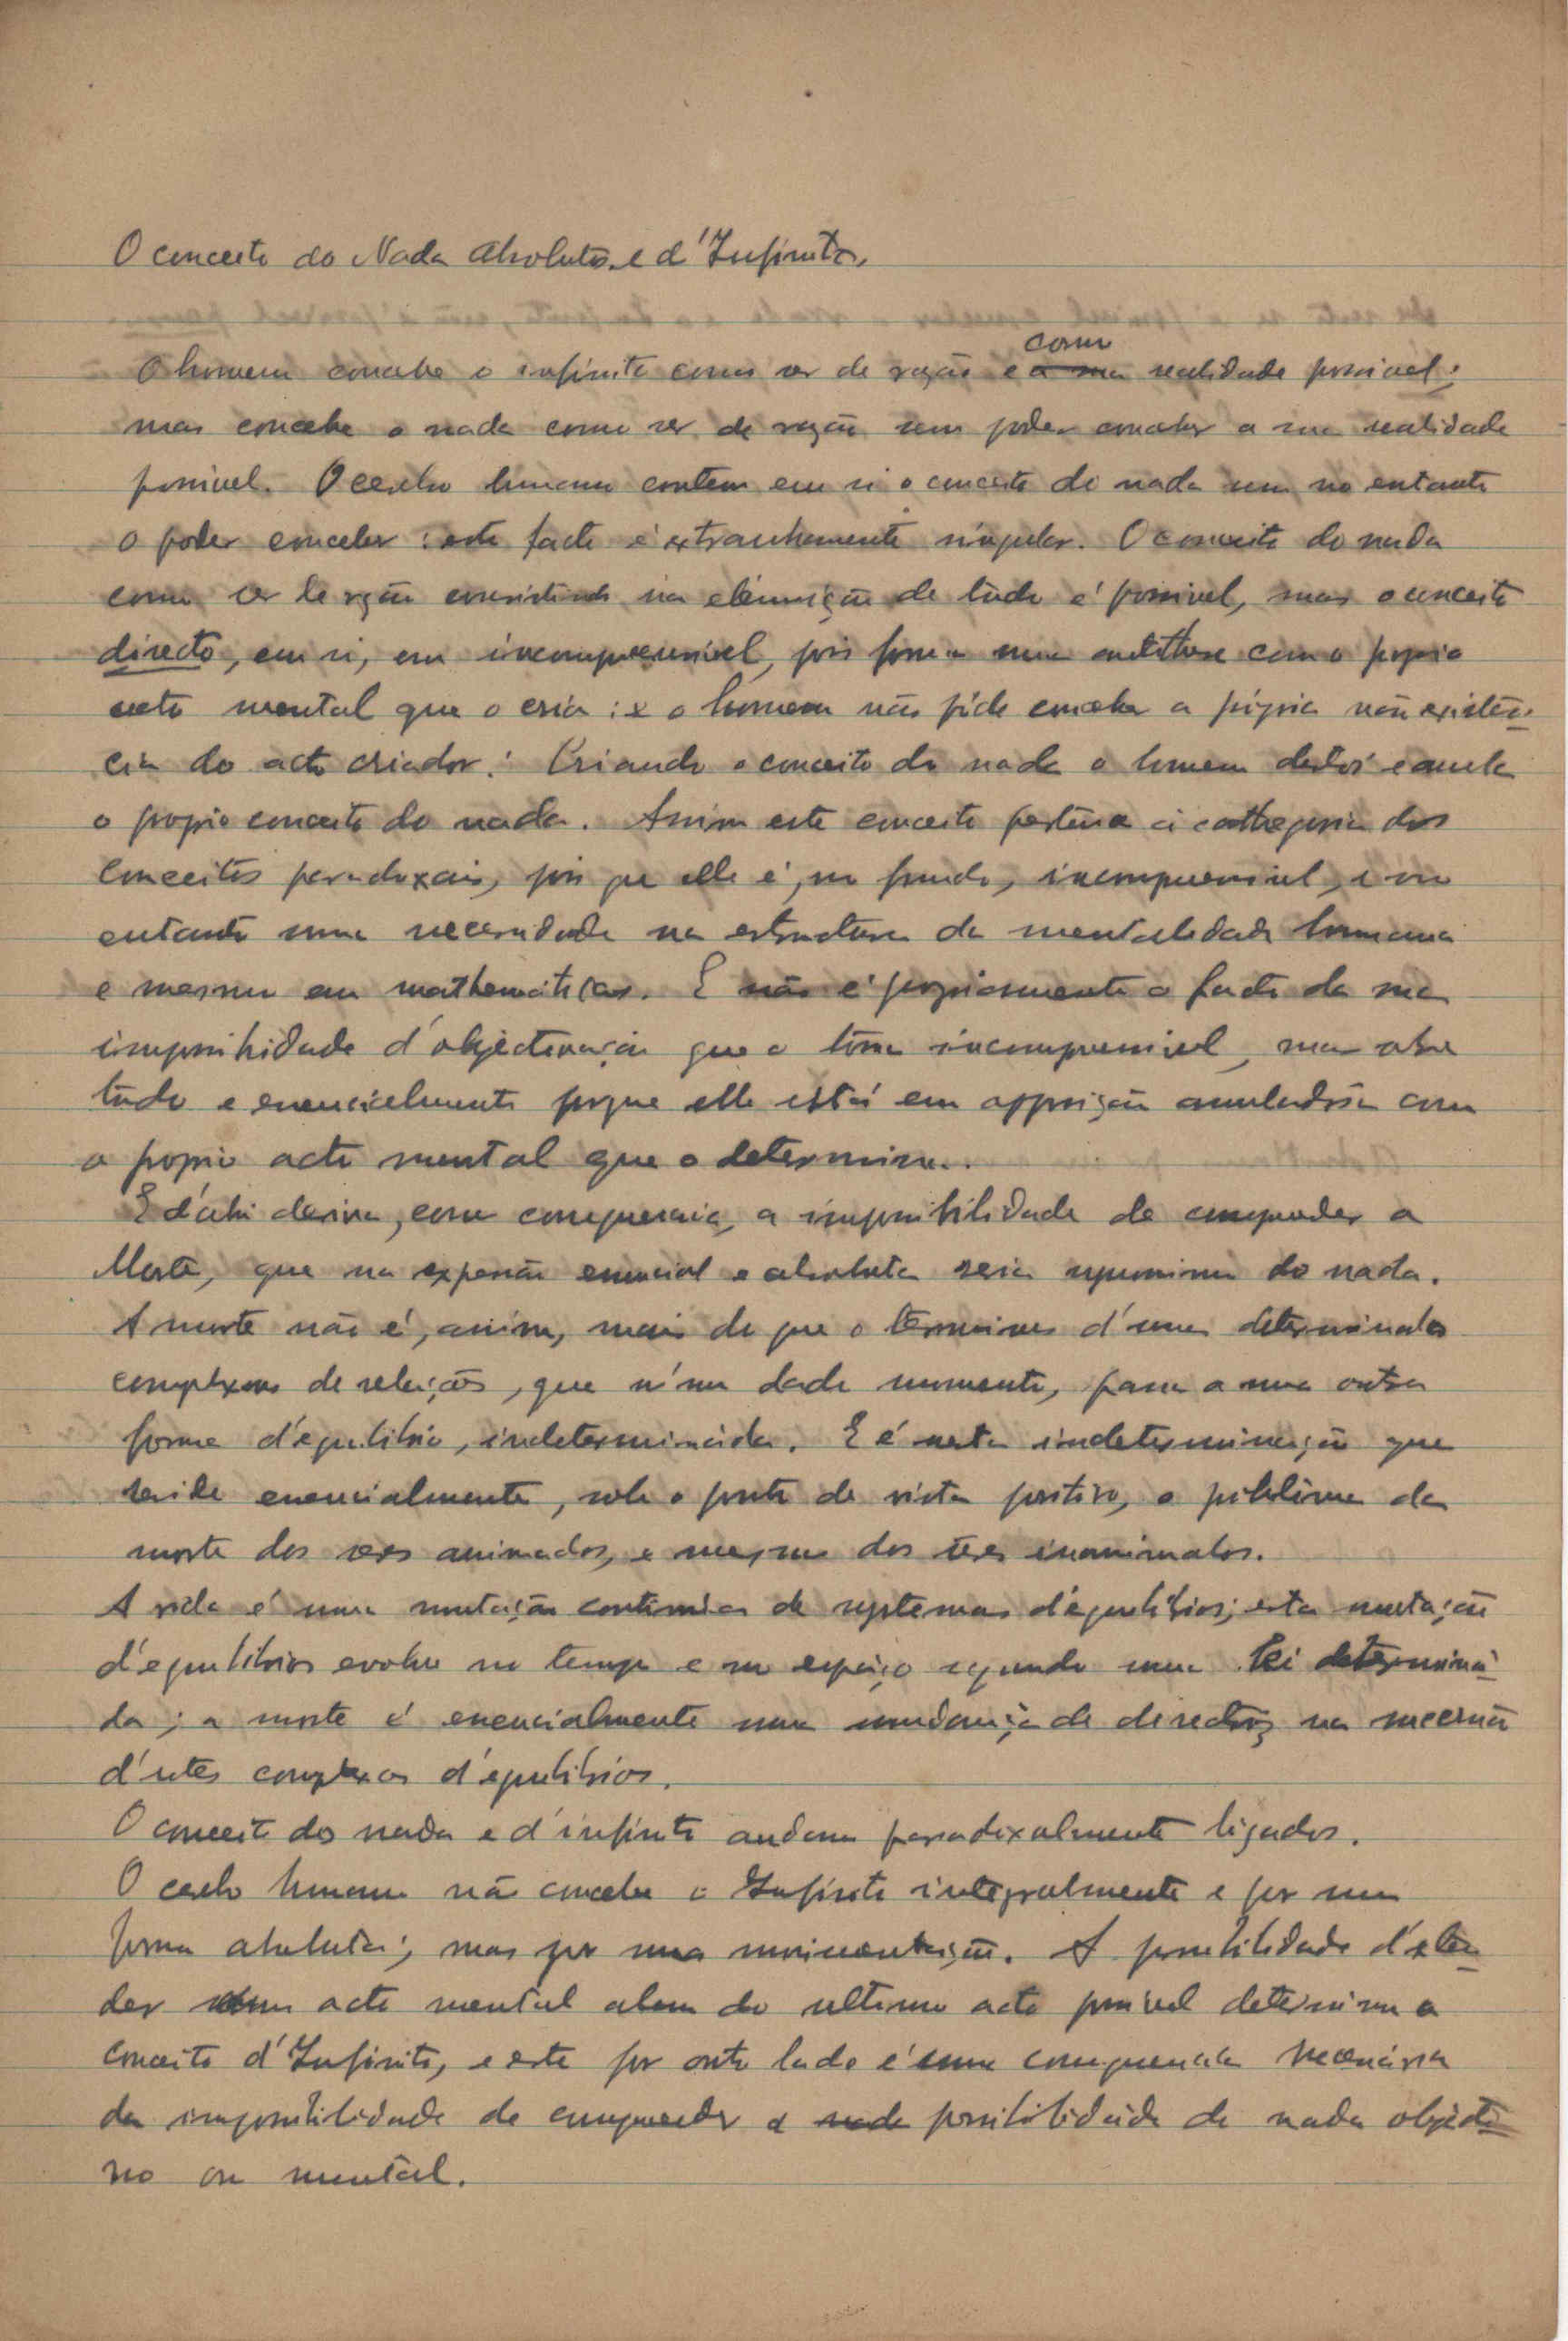 O conceito do Nada Absoluto e d'Infinito.
O homem concebe o infinito como ser de razão e como realidade possivel;
mas concebe o nada como ser de razão sem poder conceber a sua realidade
possivel. O cerebro humano contem em si o conceito de nada sem no entanto
o poder conceber: este facto é extranhamente singular. O conceito do nada
como ser de razão consistindo na eliminação de tudo é possivel, mas o conceito
directo, em si, em incompreensivel, pois forma uma antithese com o proprio
acto mental que o cria: e o homem não póde conceber a própria não existên-
cia do acto criador. Criando o conceito do nada o homem destroi e anula
o proprio conceito do nada. Assim este conceito pertence á cathegoria dos
conceitos paradoxais, pois que elle é, no fundo, incompreensivel, e no
entanto uma necessidade na estructura da mentalidade humana
e mesmo em mathematicas. E não é propriamente o facto da sua
impossibilidade d'objectivação que o torna incompreensivel, mas sobre
tudo e essencialmente porque elle está em opposição anuladora com
o proprio acto mental que o determina.
E d'ahi deriva, como consequencia, a impossibilidade de comprender a
Morte, que na expressão essencial e absoluta seria synonimo do nada.
A morte não é, assim, mais do que o terminus d'uns determinados
complexos de relações, que n'um dado momento, passa a uma outra
forma d'équilibrio, indeterminada. E é nesta indeterminação que
reside essencialmente, sob o ponto de vista positivo, o problema da
morte dos seres animados, e mesmo dos seres inanimados.
A vida é uma mutação continua de systemas d'équilibrios; esta mutação
d'equilibrios evolue no tempo e no espaço segundo uma lei determina-
da; a morte é essencialmente uma mudança de direcção na sucessão
d'estes complexos d'equilibrios.
O conceito do nada e d'infinito andam paradoxalmente ligados.
O cerebro humano não concebe o Infinito integralmente e por uma
forma absoluta; mas por uma movimentação. A possibilidade d'esten-
der um acto mental alem do ultimo acto possivel determina o
conceito d'Infinito, e este por outro lado é uma consequencia necessária
da impossibilidade de comprender a possibilidade de nada objecti-
vo ou mental.